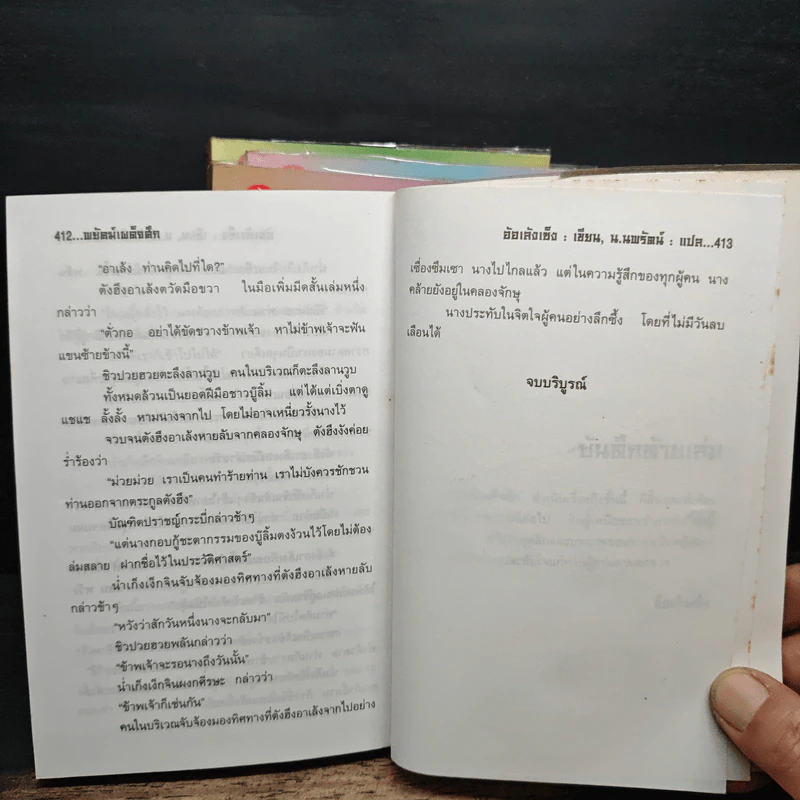 412...พยัคฆ์เผด็จศึก
"อาเล้ง ท่านคิดไปที่ใด?"
ตังฮึงอาเล้งตวัดมือขวา ในมือเพิ่มมีดสั้นเล่มหนึ่ง
กล่าวว่า
"ตั่วกอ อย่าได้ขัดขวางข้าพเจ้า หาไม่ข้าพเจ้าจะฟัน
แขนซ้ายข้างนี้"
ชิวปวยฮวยตะลึงลานวูบ คนในบริเวณก็ตะลึงลานวูบ
ทั้งหมดล้วนเป็นยอดฝีมือชาวบู๊ลิ้ม แต่ได้แต่เบิ่งตาดู
แชแช ลั้งลั้ง หามนางจากไป โดยไม่อาจเหนี่ยวรั้งนางไว้
จวบจนตังฮึงอาเล้งหายลับจากคลองจักษุ ตังฮึงงังค่อย
ร่ำร้องว่า
"ม่วยม่วย เราเป็นคนทำร้ายท่าน เราไม่บังควรชักชวน
ท่านออกจากตระกูลตังฮึง"
บัณฑิตปราชญ์กระบี่กล่าวช้าๆ
"แต่นางกอบกู้ชะตากรรมของบู๊ลิ้มตงง้วนไว้โดยไม่ต้อง
ล่มสลาย ฝากชื่อไว้ในประวัติศาสตร์"
น่ำเก็งเง็กจินจับจ้องมองทิศทางที่ตังฮึงอาเล้งหายลับ
กล่าวช้าๆ
"หวังว่าสักวันหนึ่งนางจะกลับมา"
ชิวปวยฮวยพลันกล่าวว่า
"ข้าพเจ้าจะรอนางถึงวันนั้น"
น่ำเก็งเง็กจินผงกศีรษะ กล่าวว่า
"ข้าพเจ้าก็เช่นกัน"
คนในบริเวณจับจ้องมองทิศทางที่ตังฮึงอาเล้งจากไปอย่าง
อ้อเล้งเซ็ง : เขียน, น.นพรัตน์ : แปล...413
เซื่องซึมเซา นางไปไกลแล้ว แต่ในความรู้สึกของทุกผู้คน นาง
คล้ายยังอยู่ในคลองจักษุ
นางประทับในจิตใจผู้คนอย่างลึกซึ้ง โดยที่ไม่มีวันลบ
เลือนได้
จบบริบูรณ์